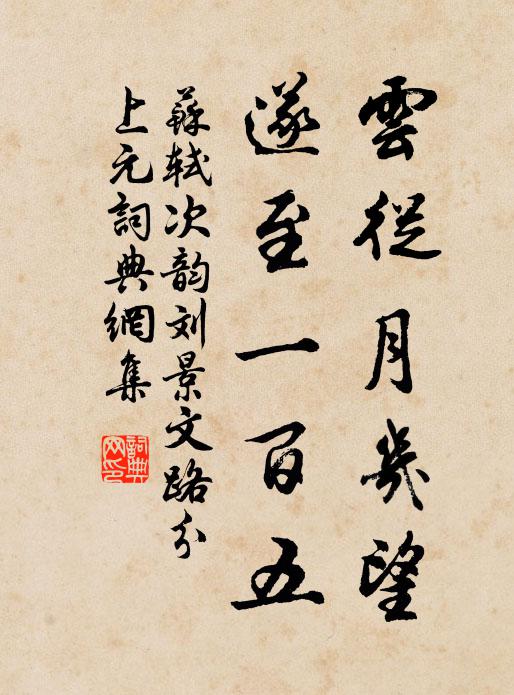 雲從月幾望
遂至一百五
蘇軾次韵刘景文路分
上元詞典網集
詞典
网印